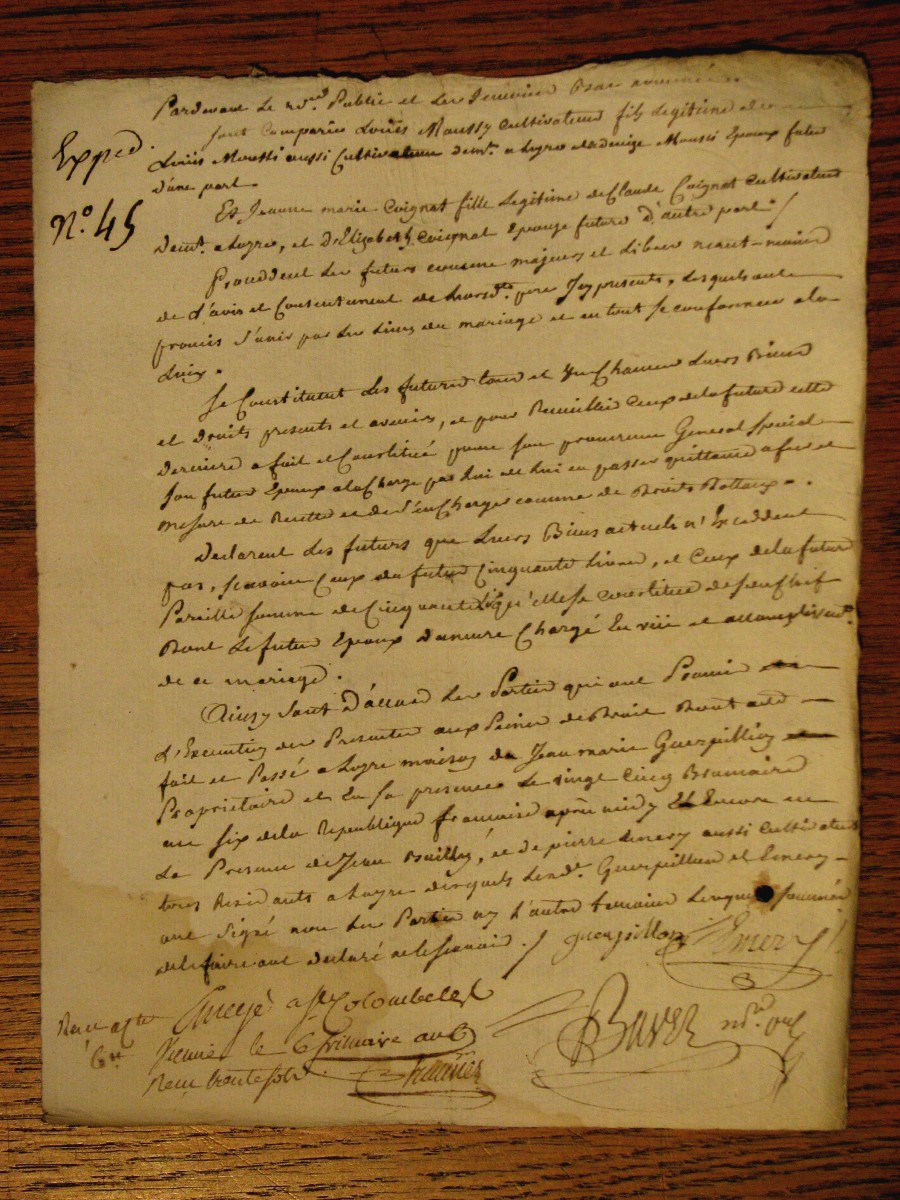 Expped.
N.o 45
Pardevant Le Public et Les Temoins Bas només
sont Comparûs Loüis Moussy Cultivateur fils Legitime de
Loüis Moussi aussi Cultivateur demt. a Loyre et denize Moussi Epoux futur
d'une part.
Et Jeanne marie Coignat fille Legitime de Claude Coignat Cultivateur
demt. a Loyre, et d'Elizabeth Coignat Epouze future d'autre part./
Procedent Les futurs comme majeurs et Libres neant-moins
de L'avis et Consentement de Leurs pere Icy presents, Lesquels ont
promis S'unir par Les Liens du mariage et en tout se conformer a la
Loix.
Se Constituent Les futurs tous et Un Chacun Leurs Biens
et Droits presents et avenirs, et pour Recueillir Ceux de la future cette
derniere a fait et Constitué pour son procureur General Special
son futur Epoux a la Charge par Lui de Lui en passer quittance a fur et
mesure de Recette et de s'en Charger comme de Droits Dottaux.
Declarent Les futurs que Leurs Biens actuels n'Exceddent
pas, scavoir Ceux du futur Cinquante Livres, et Ceux de la future
Pareille somme de Cinquante qu'elle se constitue de Chef
Dont Le futur Epoux demeure Chargé En et accomplissent.
de ce mariage.
Ainsy sont d'accord Les Parties qui ont Promis
L'Execution des Presentes aux Peines de Droit Dont acte
fait et Passé a Loyre maison de Jean marie Guerpillion
Propriétaire et En sa presence Le vingt Cinq Brumaire
an six de la Republique francaise après midy Et Encore en
La Presence de Jean Bailly, et de pierre Emery aussi Cultivateurs
tous Residants a Loyre desquels Lesd. Guerpillion et Emery
ont Signé non Les Parties ny L'autre temoin Lenquis sommés
de le faire ont declaré ne le scavoir./ guerpillon Emery
Enregé a Ste Colombe Les
Vienne le 6 frimaire an 6
Recu trente sols
Baver